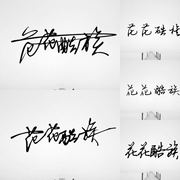 花花酷族
花花酷族
花花酷族
花花酷族
花花酷族